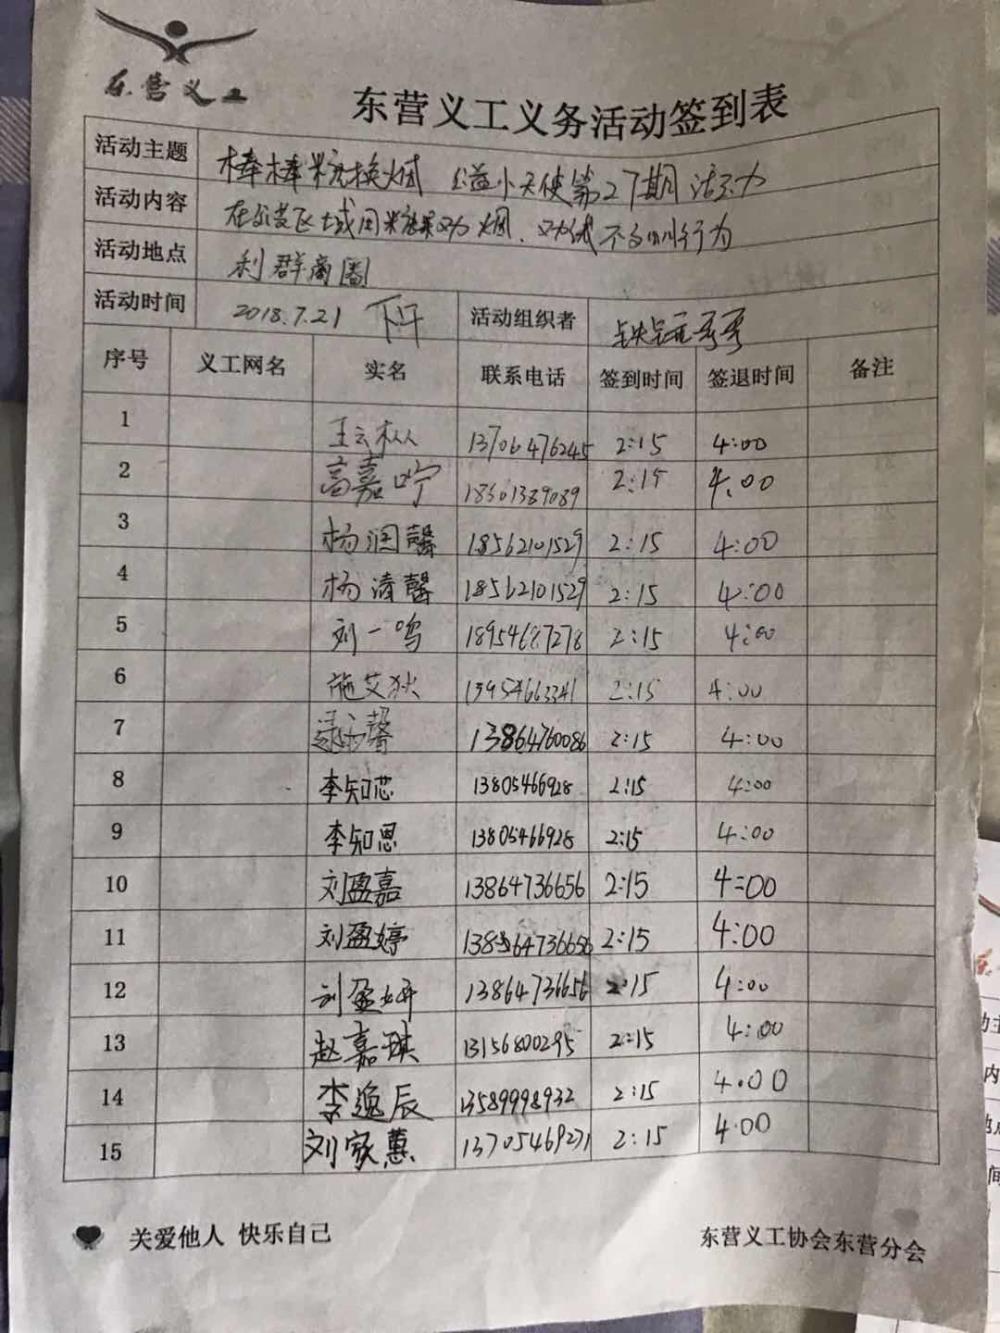 东营义工
东营义工义务活动签到表
活动主题 棒棒糖换烟 公益小天使第27期活动
活动内容 在公共区域用糖果劝烟、劝诫不文明行为
活动地点 利群商圈
活动时间 2018.7.21 下午 活动组织者 铁锤哥哥
序号 义工网名 实名 联系电话 签到时间 签退时间 备注
1 王云枞 13706476245 2:15 4:00
2 高嘉咛 2:15 4:00
3 杨润馨 18562101529 2:15 4:00
4 杨清馨 18562101529 2:15 4:00
5 刘一鸣 18954687278 2:15 4:00
6 施艾狄 13954663341 2:15 4:00
7 馨 13864760086 2:15 4:00
8 李知芯 13805466928 2:15 4:00
9 李知恩 13805466928 2:15 4:00
10 刘盈嘉 13864736656 2:15 4:00
11 刘盈婷 13864736656 2:15 4:00
12 刘盈妍 13864736656 2:15 4:00
13 赵嘉琪 13156800295 2:15 4:00
14 李逸辰 13589998932 2:15 4:00
15 刘家蕙 13705469271 2:15 4:00
关爱他人 快乐自己
东营义工协会东营分会